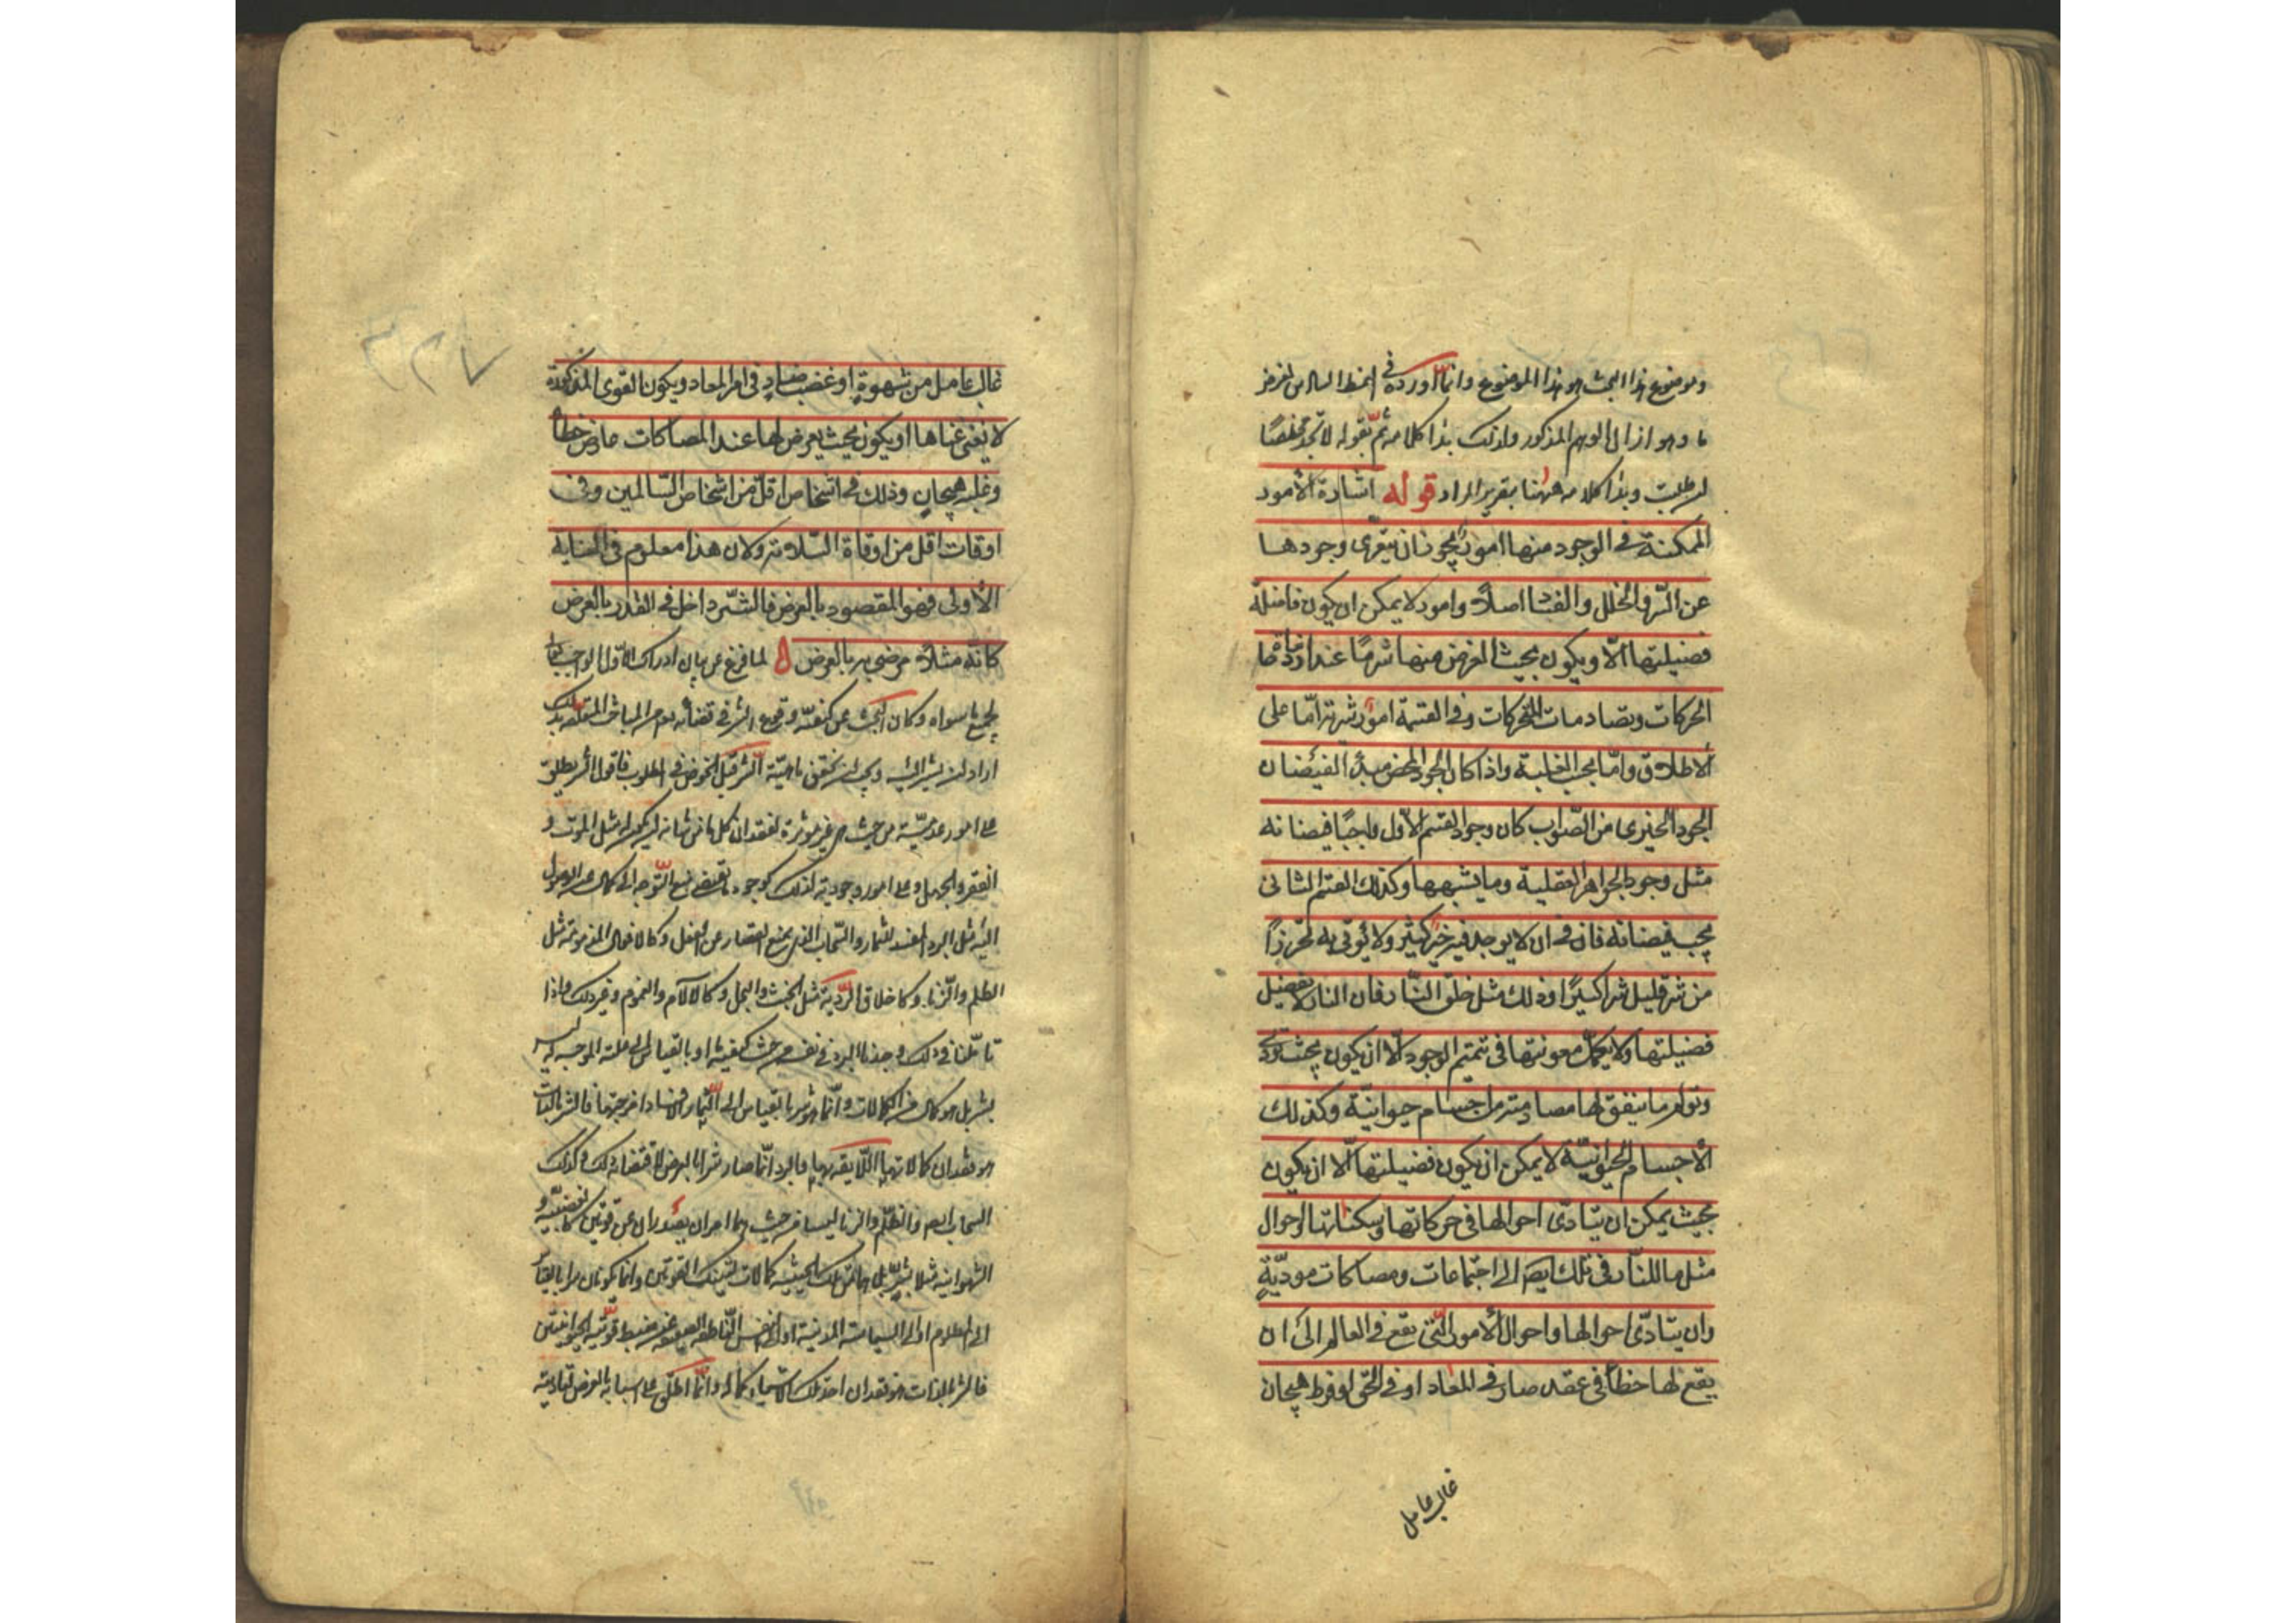 وموضوع هذا البحث هو هذا الموضوع وانما اورده فى النمط السادس لغرض
ما وهو ازالة الوهم المذكور ولذلك بدأ كلامه ثم بقوله لا تجد مخلصا
ان طلبت وبدأ كلامه ههنا بتقرير المراد قوله اشارة الأمور
الممكنة فى الوجود منها امور يجوز ان يتعرى وجودها
عن الشر والخلل والفساد اصلا وامور لا يمكن ان يكون فاضلة
فضيلتها الا ويكون بحيث يعرض منها شر ما عند ازدحامات
الحركات وتصادمات المتحركات وفى القسمة امور شرية اما على
الاطلاق واما بحسب الغلبة واذا كان الجود المحض مبدأ لفيضان
الوجود الخيرى من الصواب كان وجود القسم الأول واجبا فيضانه
مثل وجود الجواهر العقلية وما يشبهها وكذلك القسم الثانى
يجب فيضانه فان فى ان لا يوجد فيه خير كثير ولا يؤتى به تحرزا
من شر قليل شرا كثيرا وذلك مثل خلق النار فان النار لا تفضل
فضيلتها ولا يكمل معونتها فى تتميم الوجود الا ان يكون بحيث تؤذى
وتولم ما يتفق لها مصادمته من اجسام حيوانية وكذلك
الأجسام الحيوانية لا يمكن ان يكون فضيلتها الا ان يكون
بحيث يمكن ان يتأدى احوالها فى حركاتها وسكناتها واحوال
مثل ما للنار فى تلك ايضا الى اجتماعات ومصاكات موذية
وان يتأدى احوالها واحوال الأمور التى تقع فى العالم الى ان
يقع لها خطأ فى عقد ضار فى المعاد او فى الحق او فرط هيجان
غالب عامل
غالب عامل من شهوة او غضب ضار فى امر المعاد ويكون القوى المذكورة
لا يغنى غناها او يكون بحيث يعرض لها عند المصاكات عارض خطأ
وغلبة هيجان وذلك فى اشخاص اقل من اشخاص السالمين وفى
اوقات اقل من اوقاة السلامة ولان هذا معلوم فى العناية
الأولى فهو المقصود بالعرض فالشر داخل فى القدر بالعرض
كانه مثلا مرضى به بالعرض لما فرغ عن بيان ادراك الأول الواجب
لجميع ما سواه وكان البحث عن كيفية وقوع الشر فى قضائه من المباحث المتعلقة بذلك
اراد ان يشير اليه ويجب ان نحقق ماهية الشر قبل الخوض فى المطلوب فاقول الشر يطلق
على امور عدمية من حيث هى غير موثرة كفقدان كل ما من شانه ان يكون له مثل الموت و
الفقر والجهل وعلى امور وجودية كذلك كوجود ما يقتضى منع التوجه الى كمال عن الوصول
اليه مثل البرد المفسد للثمار والسحاب الذى يمنع القصار عن الفعل وكالافعال المذمومة مثل
الظلم والزنا وكاخلاق الردية مثل الجبن والبخل وكالآلام والغموم وغير ذلك واذا
تأملنا فى ذلك وجدنا البرد فى نفسه من حيث كيفيته او بالقياس الى علته الموجبة له ليس
بشر بل هو كمال من الكمالات وانما هو شر بالقياس الى الثمار لافساده امزجتها فالشر بالذات
هو فقدان كمالاتها اللائقة بها والبرد انما صار شرا بالعرض لاقتضائه ذلك وكذلك
السحاب ايضا والظلم والزنا ليسا من حيث هما امران يصدران عن قوتين كالغضبية و
الشهوانية مثلا بشر بل هما من تلك الحيثية كمالات لتينك القوتين وانما يكونان شرا بالقياس
الى المظلوم او الى السياسة المدنية او الى النفس الناطقة الضعيفة عن ضبط قوتيه الحيوانيتين
فالشر بالذات هو فقدان احد تلك الاشياء كماله وانما اطلق على اسبابه بالعرض لتأديته